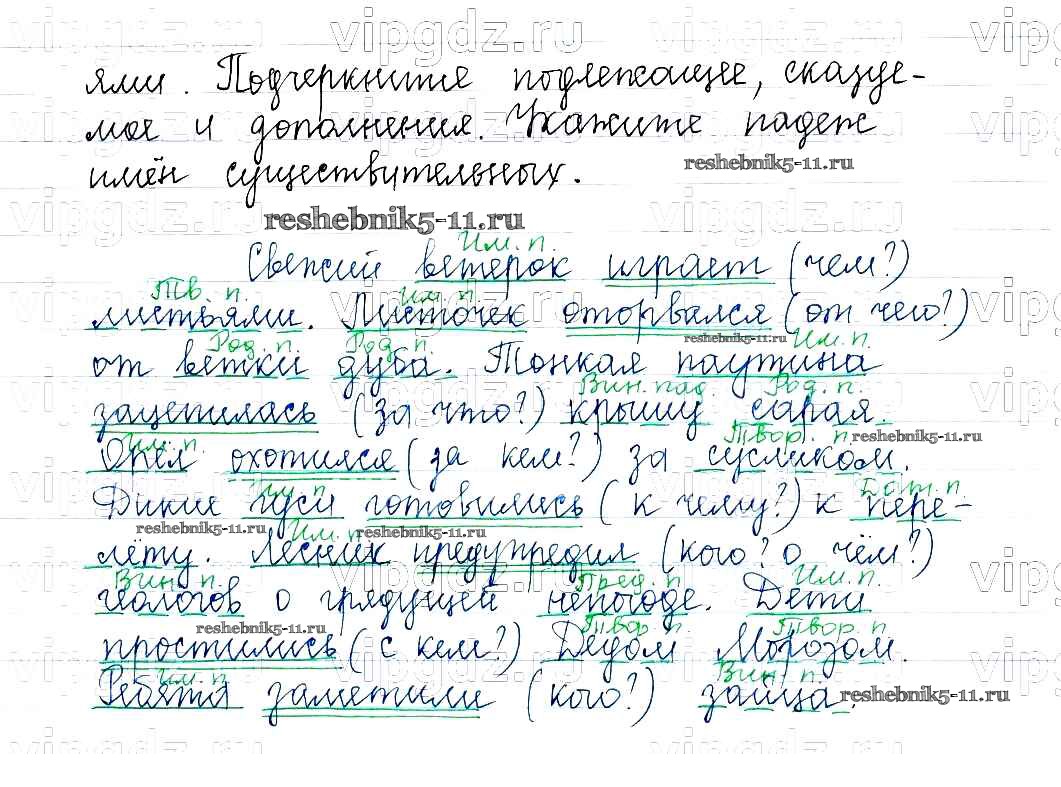 vipgdz.ru vipgdz.ru vipgdz.ru vipg
ями. Подчеркните подлежащее, сказуе-
мое и дополнения. Укажите падеж
reshebnik5-11.ru
имён существительных.
vipgdz.ru vipgdz.ru vipgdz.ru vipg
reshebnik5-11.ru
Им. п.
Свежий ветерок играет (чем?)
Тв. п. Им. п.
листьями. Листочек оторвался (от чего?)
reshebnik5-11.ru
Род. п. Род. п. Им. п.
от ветки дуба. Тонкая паутина
Вин. пад. Род. п.
зацепилась (за что?) крышу сарая.
Им. п. Твор. п. reshebnik5-11.ru
Орёл охотился (за кем?) за сусликом.
Им. п. Дат. п.
Дикие гуси готовились (к чему?) к пере-
reshebnik5-11.ru Им. п. reshebnik5-11.ru
лёту. Лесник предупредил (кого? о чём?)
Вин. п. Пред. п. Им. п.
геологов о грядущей непогоде. Дети
reshebnik5-11.ru Твор. п. Твор. п.
простились (с кем?) Дедом Морозом.
Им. п. Вин. п.
Ребята заметили (кого?) зайца.
reshebnik5-11.ru